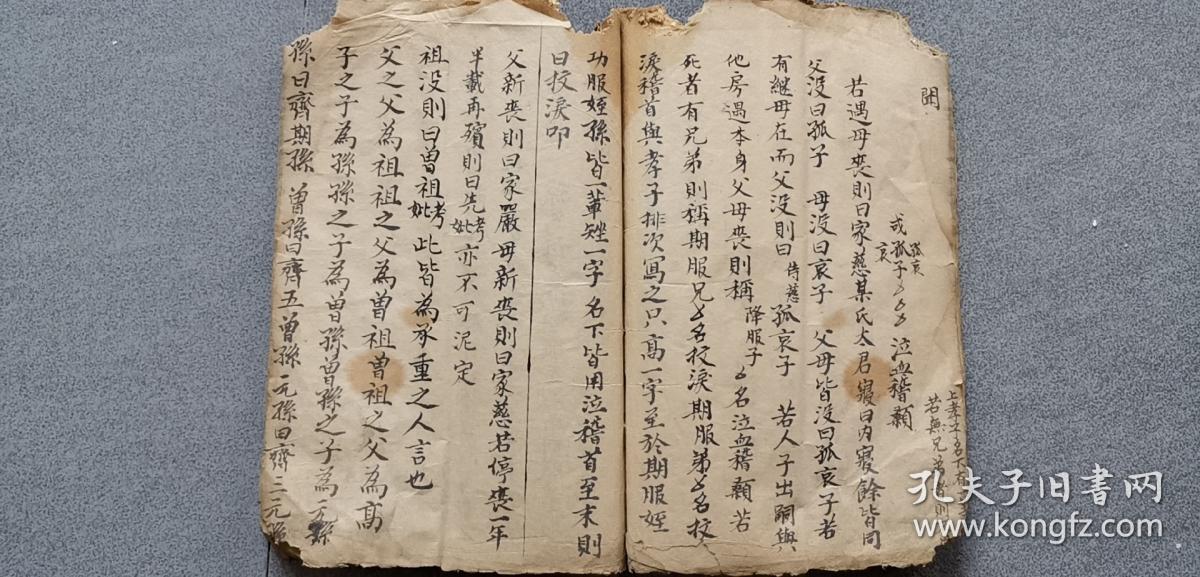 聞
上孝子名下有
若無兄弟則
孤哀
或孤子某某 泣血稽顙
哀
若遇母喪則曰家慈某氏太君寢曰內寢餘皆同
父没曰孤子 母没曰哀子 父母皆没曰孤哀子若
有継母在而父没則曰侍慈孤哀子 若人子出嗣與
他房遇本身父母喪則稱降服子〻名泣血稽顙若
死者有兄弟則稱期服兄〻名抆淚期服弟〻名抆
淚稽首與孝子排次寫之只高一字至於期服姪
功服姪孫皆一輩矬一字名下皆用泣稽首至末則
曰抆淚叩
父新喪則曰家嚴母新喪則曰家慈若停喪一年
半載再殯則曰先考妣亦不可泥定
祖没則曰曾祖考妣此皆為承重之人言也
父之父為祖祖之父為曾祖曾祖之父為高
子之子為孫孫之子為曾孫曾孫之子為元孫
孫曰齊期孫 曾孫曰齊五曾孫 元孫曰齊三元孫
孔夫子旧书网
www.kongfz.com